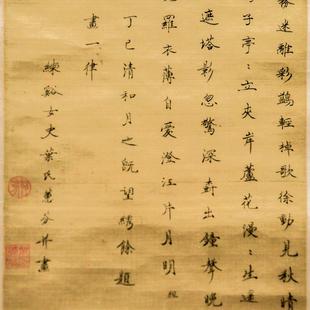 迷離彩鷁輕棹歌徐動見秋晴
子亭〻立夾岸蘆花漫〻生遠
遮塔影忽驚深寺出鐘聲晚
羅衣薄自愛澄江片月明
丁巳清和月之既望繡餘題
畫一律
練谿女史葉氏蕙芬并畫